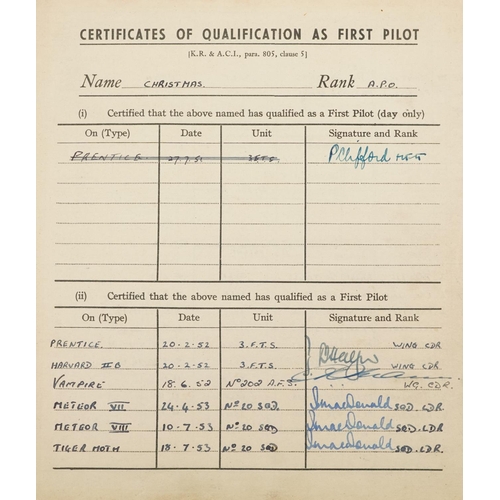 CERTIFICATES OF QUALIFICATION AS FIRST PILOT
[K.R. & A.C.I., para. 805, clause 5]
Name CHRISTMAS. Rank A.P.O.
(i) Certified that the above named has qualified as a First Pilot (day only)
On (Type) Date Unit Signature and Rank
PRENTICE 27.7.51 3 F.T.S. P Clifford
(ii) Certified that the above named has qualified as a First Pilot
On (Type) Date Unit Signature and Rank
PRENTICE. 20.2.52 3.F.T.S. WING CDR
HARVARD IIB 20.2.52 3.F.T.S. WING CDR
VAMPIRE 18.6.52 No 202 A.F.S. WG. CDR.
METEOR VII 24.4.53 No 20 SQD. MacDonald SQD. LDR.
METEOR VIII 10.7.53 No 20 SQD MacDonald SQD. LDR.
TIGER MOTH 18.7.53 No 20 SQD MacDonald SQD. LDR.